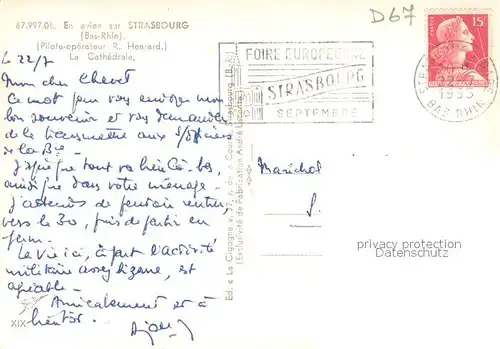 67.997.05. En avion sur STRASBOURG
(Bas-Rhin).
(Pilote-opérateur R. Henrard.)
La Cathédrale,
D67
FOIRE EUROPÉENNE
STRASBOURG
SEPTEMBRE
15F
STRASBOURG
BAS RHIN
Le 22/7
Mon cher Chevet
Ce mot pour vous envoyer mon
bon souvenir et vous demander
de le transmettre aux S/Officiers
de la Bie
J'espère que tout va bien là-bas,
ainsi que dans votre ménage.
J'attends de pouvoir rentrer
vers le 30, puis de partir en
perm.
La vie ici, à part l'activité
militaire assez bizarre, est
agréable.
Amicalement et à
bientôt.
XIX
Ed. « La Cigogne »
Exclusivité de Fabrication André
Marichol
S.
privacy protection
Datenschutz